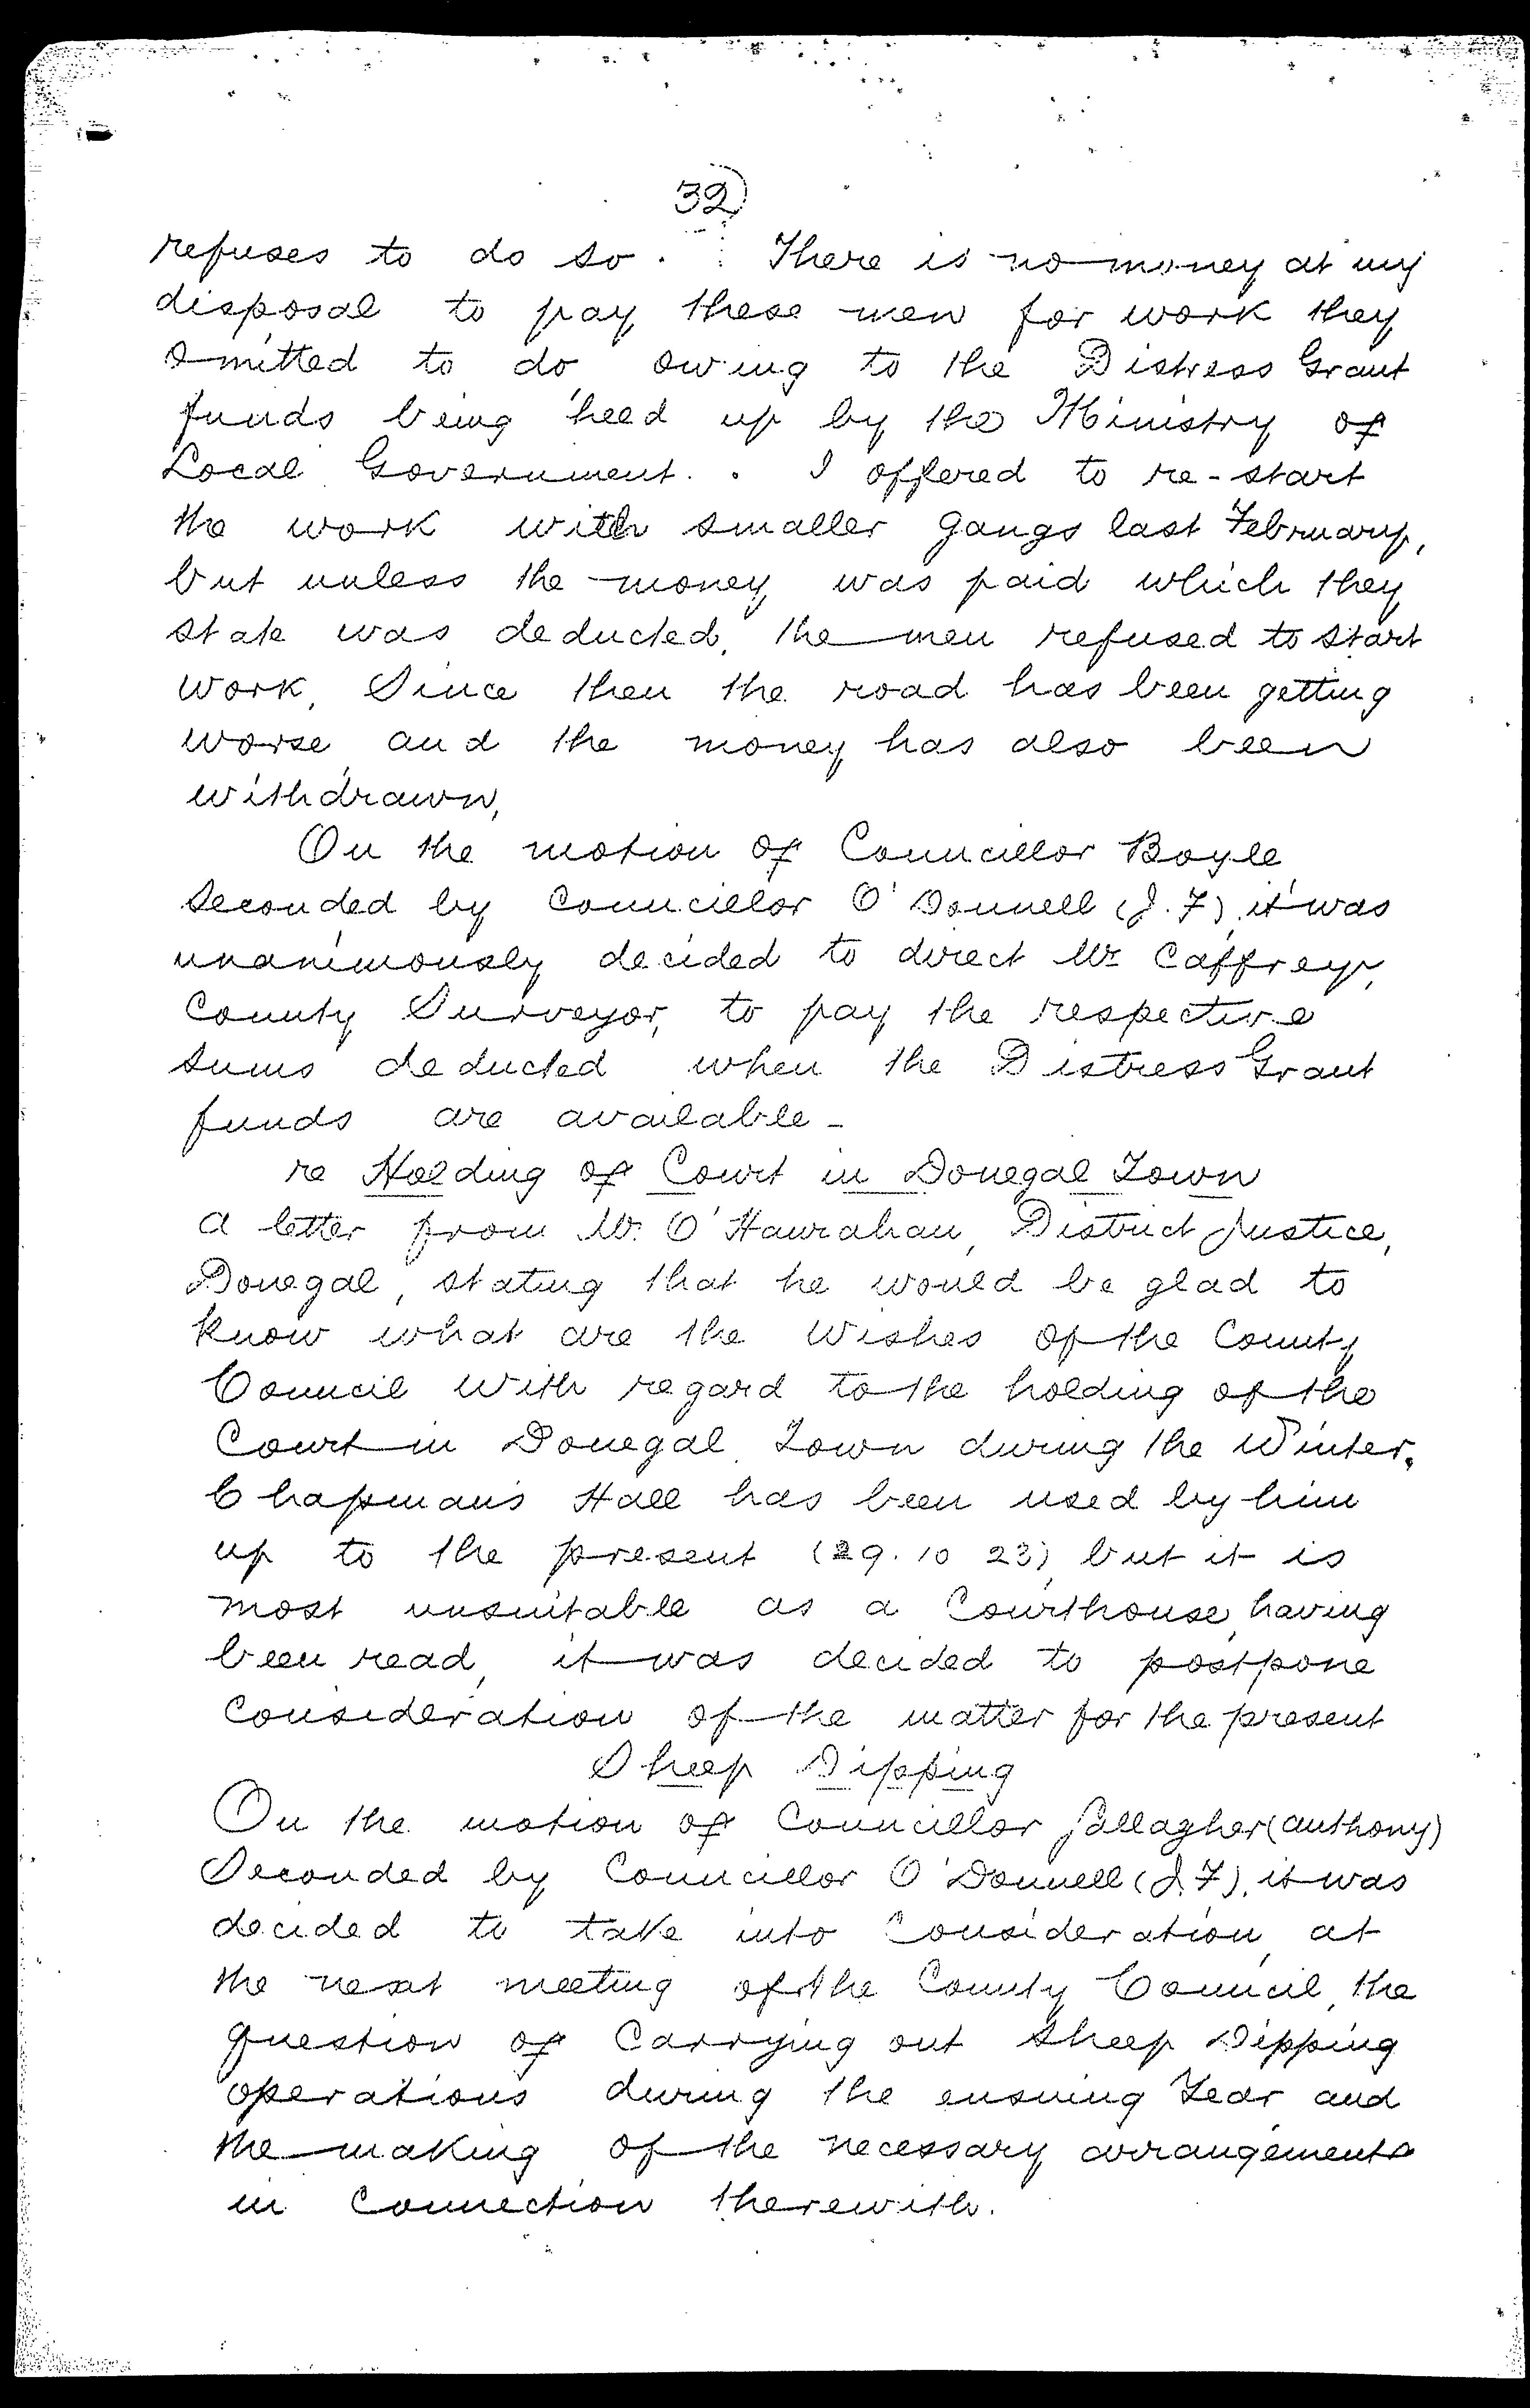 32)
refuses to do so. There is no money at my
disposal to pay these men for work they
omitted to do owing to the Distress Grant
funds being held up by the Ministry of
Local Government. . I offered to re-start
the work with smaller gangs last February,
but unless the money was paid which they
state was deducted, the men refused to start
work, Since then the road has been getting
worse and the money has also been
withdrawn,
On the motion of Councillor Boyle,
seconded by Councillor O'Donnell (J. F), it was
unanimously decided to direct Mr Caffrey,
County Surveyor, to pay the respective
sums deducted when the Distress Grant
funds are available -
re Holding of Court in Donegal Town
a letter from Mr. O'Hanrahan, District Justice,
Donegal, stating that he would be glad to
know what are the wishes of the County
Council with regard to the holding of the
Court in Donegal Town during the Winter.
Chapman's Hall has been used by him
up to the present (29. 10 23), but it is
most unsuitable as a Courthouse, having
been read, it was decided to postpone
consideration of the matter for the present
Sheep Dipping
On the motion of Councillor Gallagher (Anthony)
Seconded by Councillor O'Donnell (J. F), it was
decided to take into Consideration, at
the next meeting of the County Council, the
question of Carrying out Sheep Dipping
operations during the ensuing Year and
the making of the necessary arrangements
in Connection therewith.